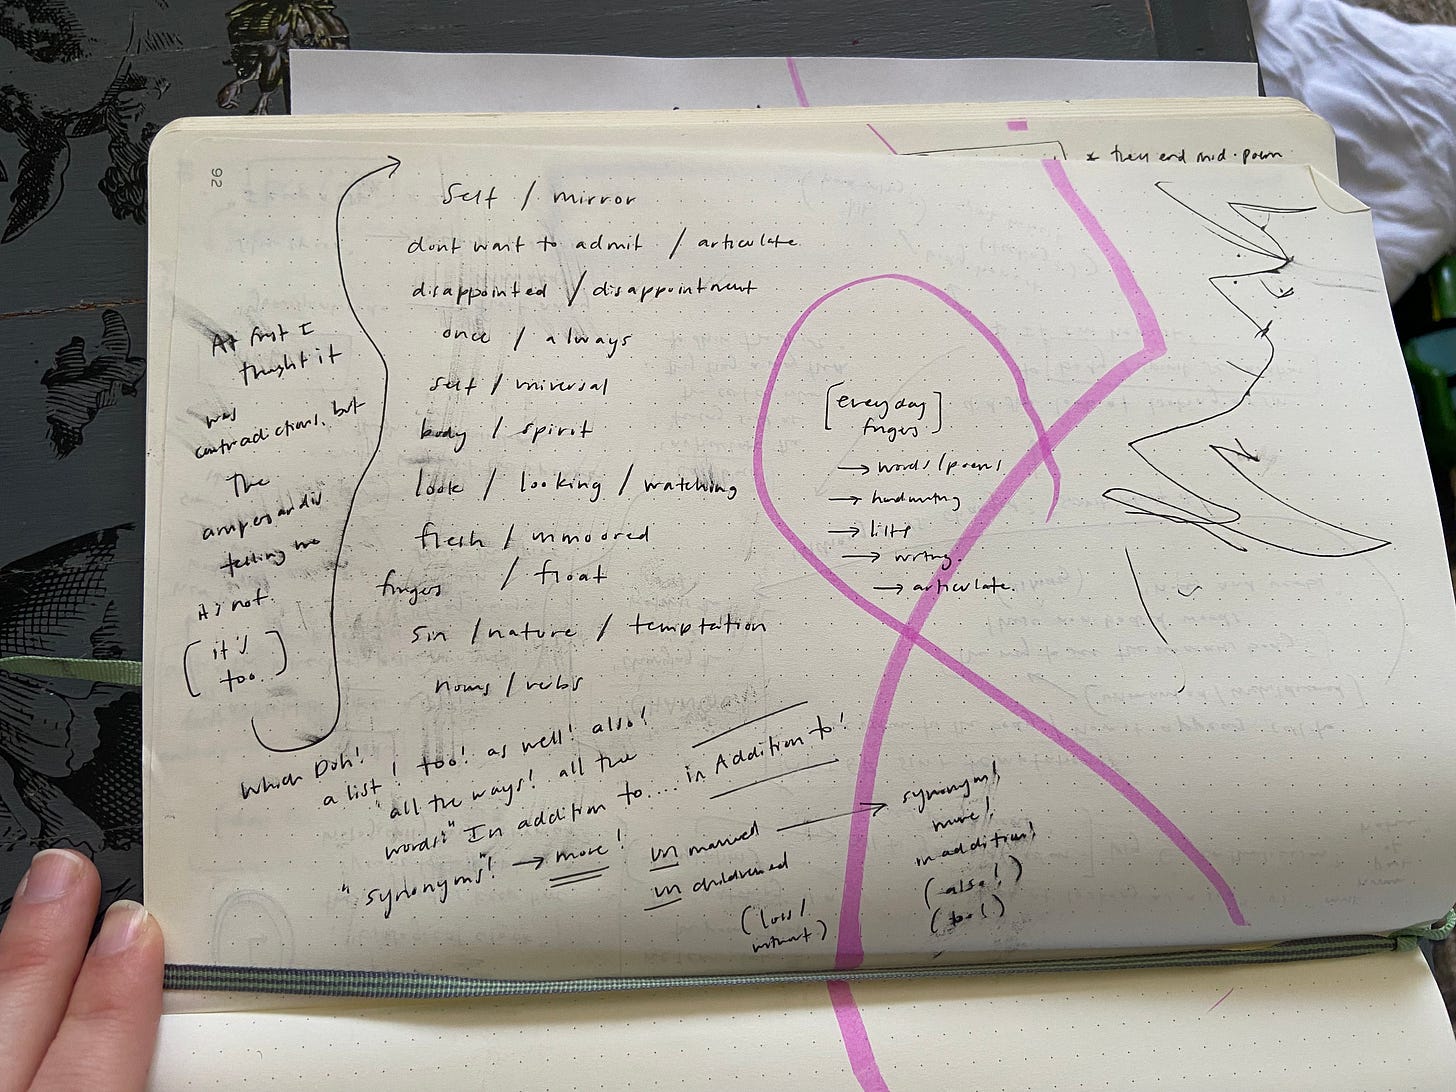 92
* they end mid-poem
self / mirror
dont want to admit / articulate
disappointed / disappointment
once / always
self / universal
body / spirit
look / looking / watching
flesh / unmoored
fingers / float
sin / nature / temptation
nouns / verbs
At first I
thought it
was
contradictions, but
the
telling me
it's not.
[it's
too.]
[everyday
fingers]
→ words/poems
→ handwriting
→ lists
→ writing.
→ articulate.
Which Duh!
a list! too! as well! also!
"all the ways! all the
words!" In addition to.... in Addition to!
"synonyms"! → more!
un married → synonyms!
un childrened
more!
in addition!
(also!)
(too!)
(loss/